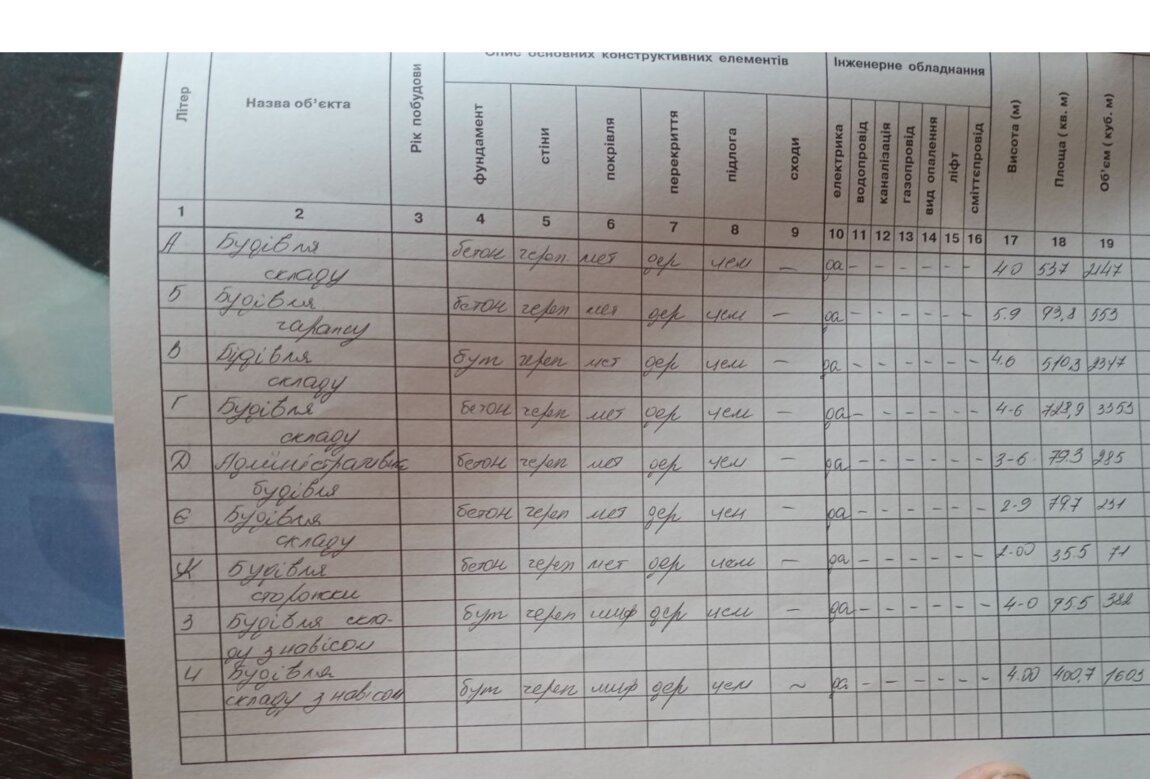 Опис основних конструктивних елементів Інженерне обладнання
Літер Назва об'єкта Рік побудови фундамент стіни покрівля перекриття підлога сходи електрика водопровід каналізація газопровід вид опалення ліфт сміттєпровід Висота (м) Площа ( кв. м) Об'єм ( куб. м)
1 2 3 4 5 6 7 8 9 10 11 12 13 14 15 16 17 18 19
А Будівля бетон череп мет дер цем —
складу да - - - - - - 4.0 537 2147
Б Будівля бетон череп мет дер цем — да - - - - - - 5.9 93,8 553
гаражу
В Будівля бут череп мет дер цем — да - - - - - - 4.6 510,3 2347
складу
Г Будівля бетон череп мет дер цем — да - - - - - - 4-6 728,9 3353
складу
Д Адміністративна бетон череп мет дер цем — да - - - - - - 3-6 79.3 285
будівля
Є Будівля бетон череп мет дер цем — да - - - - - - 2-9 79.7 231
складу
Ж Будівля бетон череп мет дер цем — да - - - - - - 2-00 35.5 71
сторожки
З Будівля скла- бут череп шиф дер цем — да - - - - - - 4-0 95.5 382
ду з навісом
И Будівля
складу з навісом бут череп шиф дер цем ~ да - - - - - - 4.00 400,7 1603